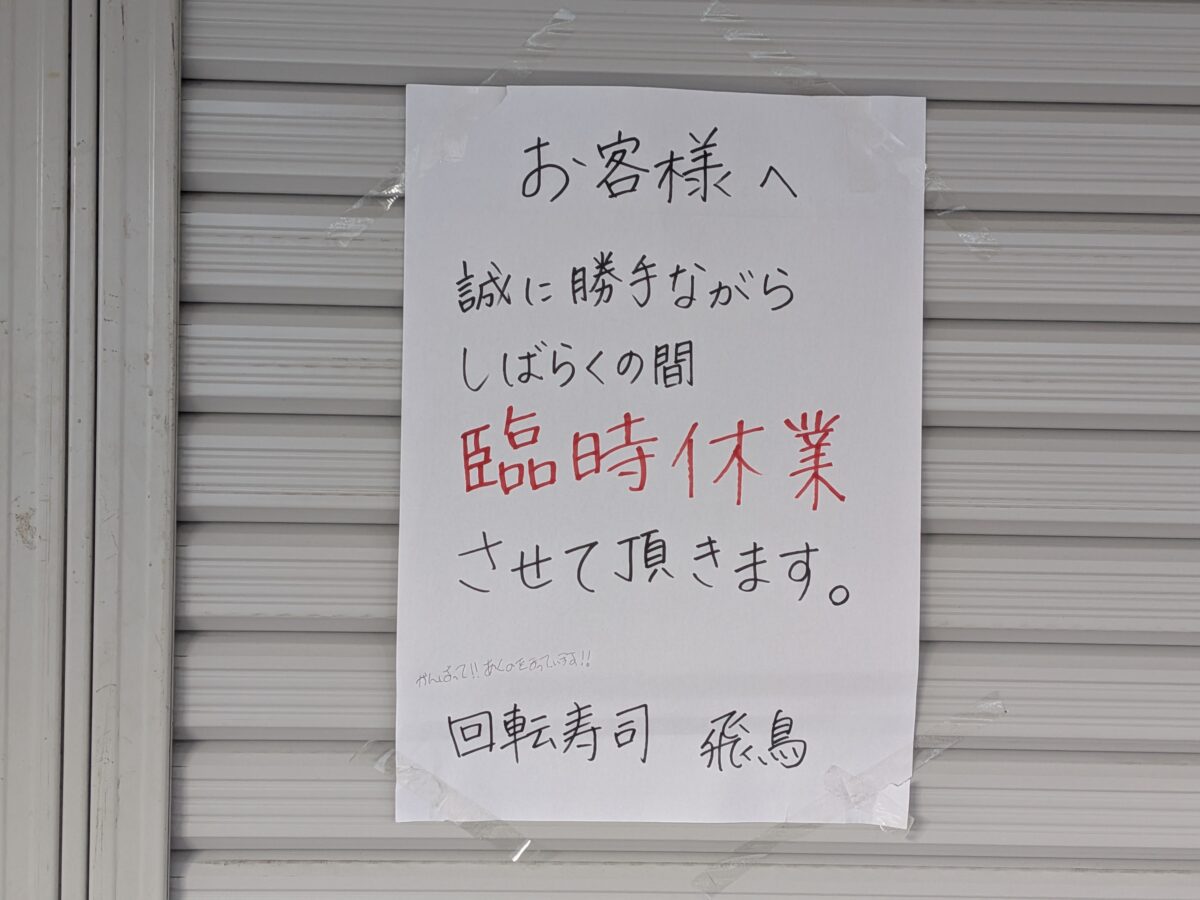 お客様へ
誠に勝手ながら
しばらくの間
臨時休業
させて頂きます。
がんばって!!あくのをまっています!!
回転寿司 飛鳥